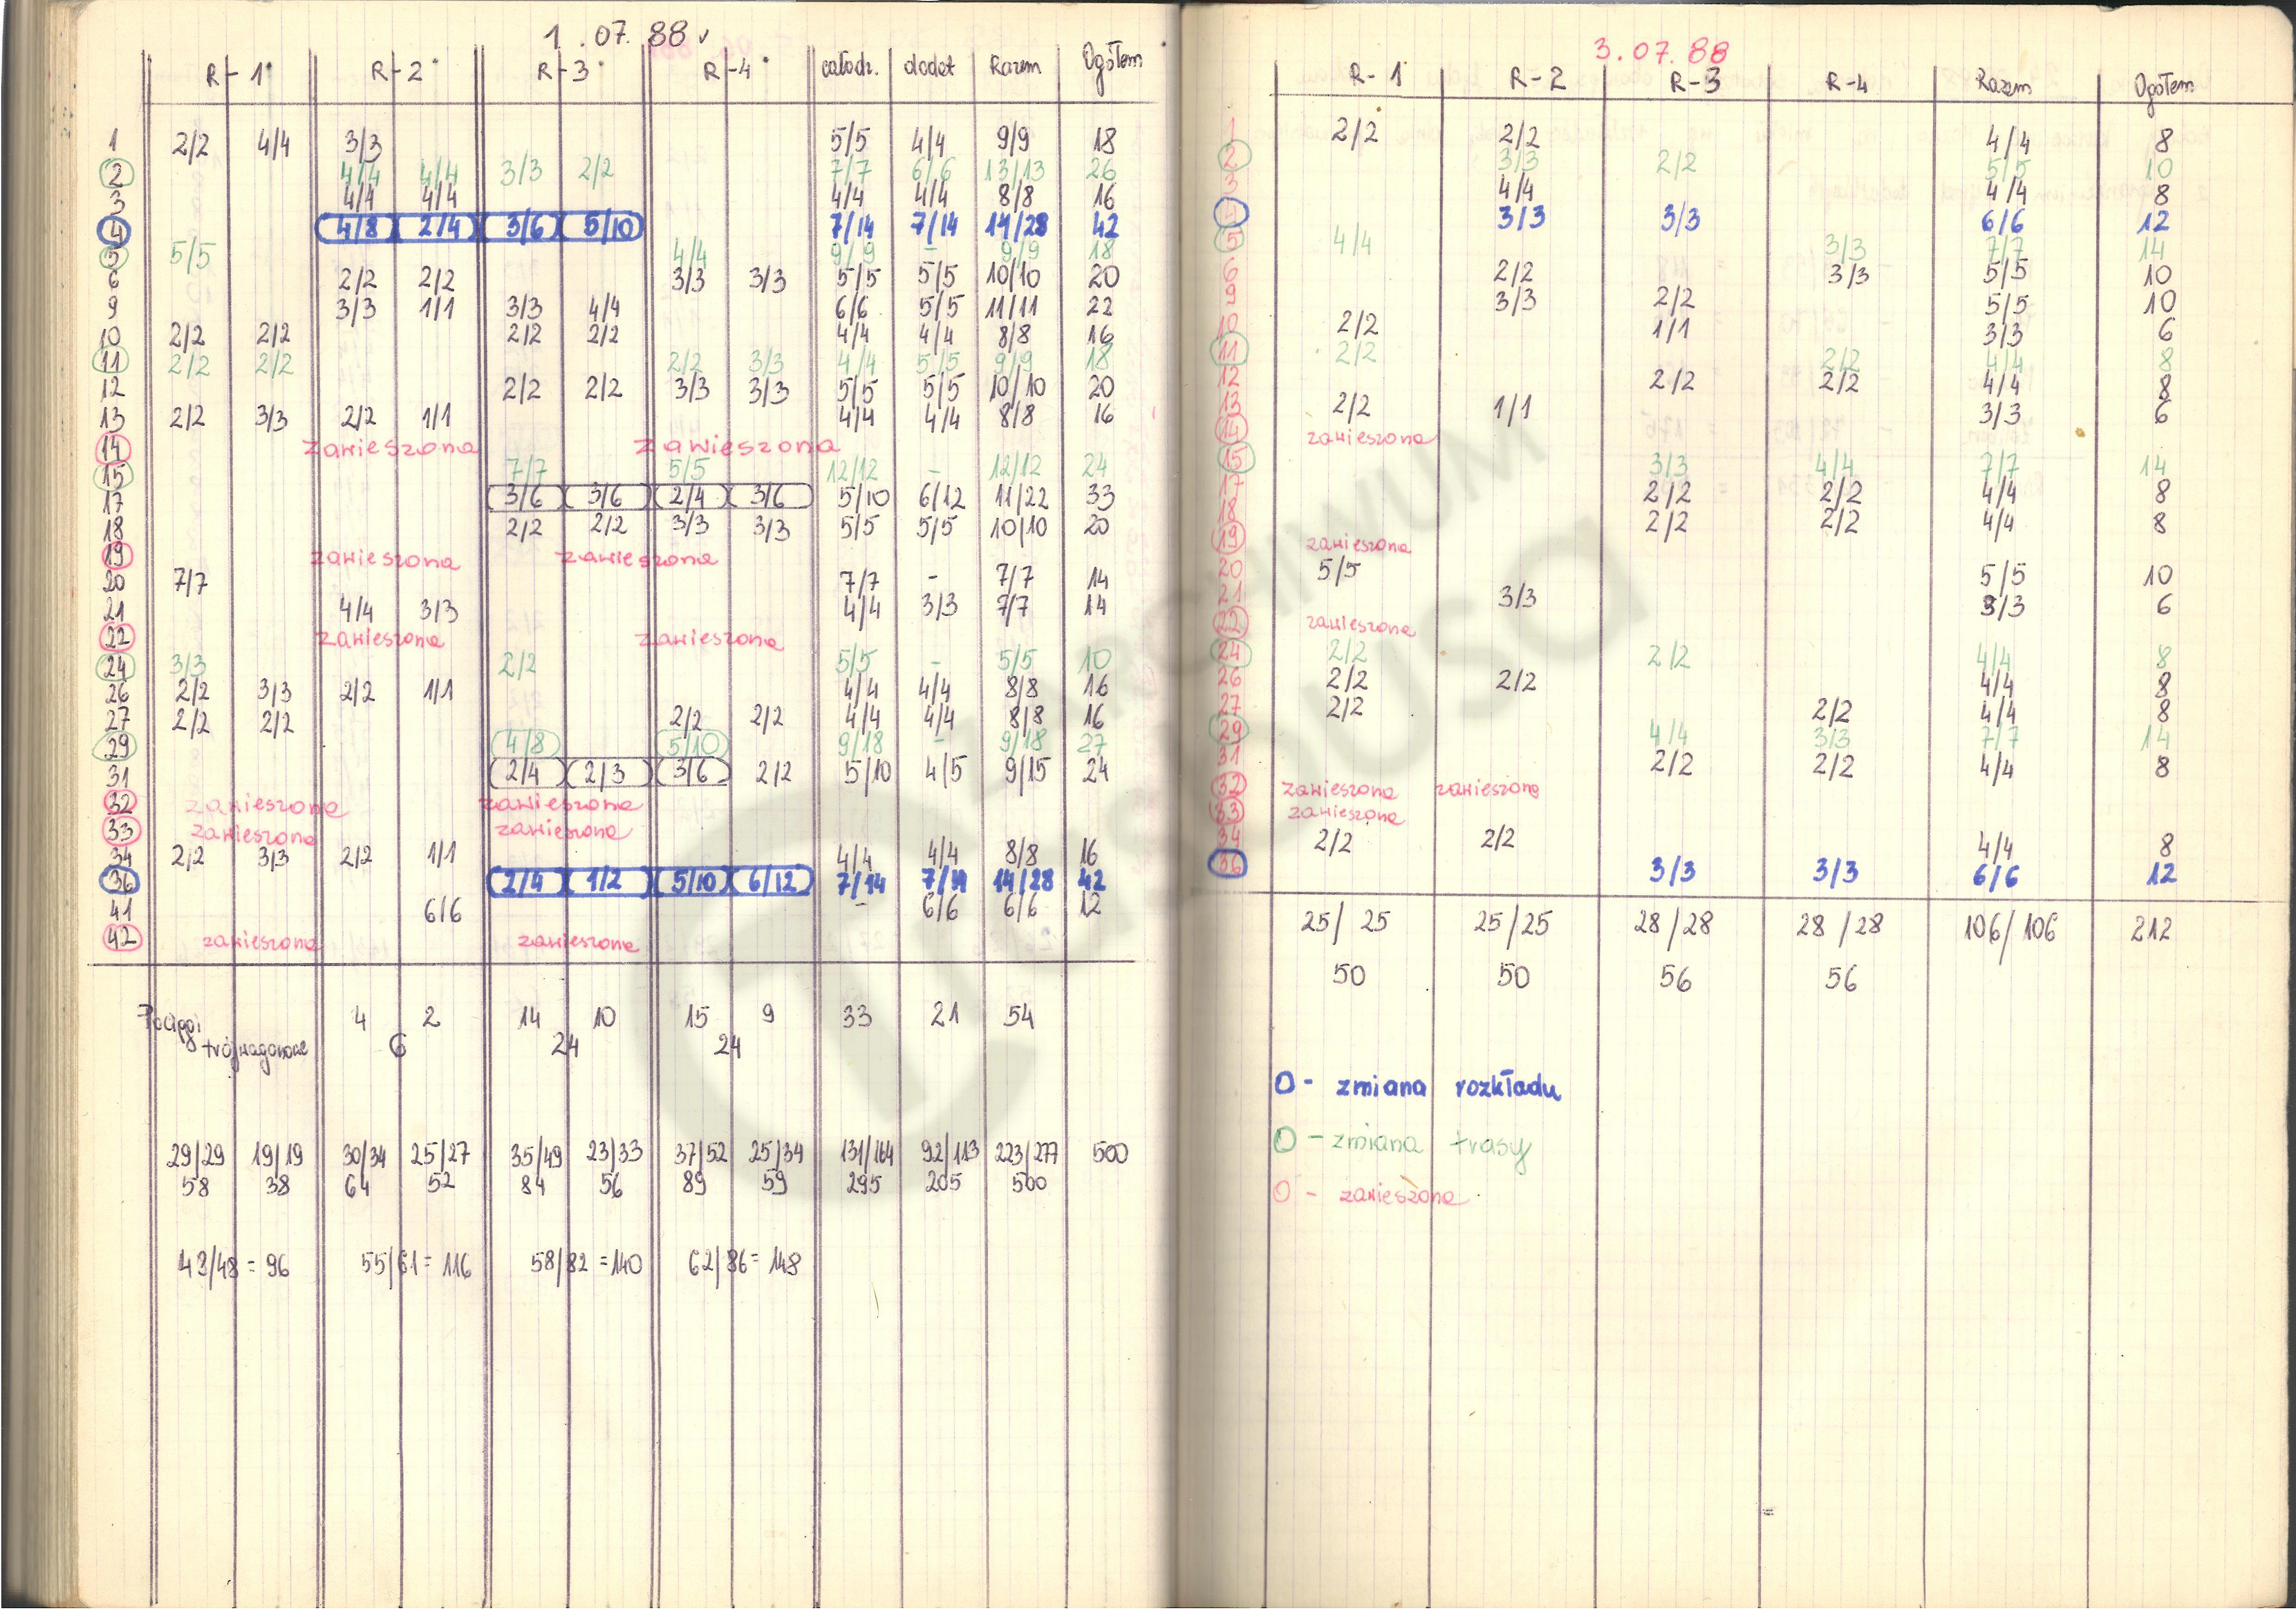 1.07.88
R-1 R-2 R-3 R-4 całodz. dodat Razem Ogółem
1 2/2 4/4 3/3 5/5 4/4 9/9 18
2 4/4 4/4 3/3 2/2 7/7 6/6 13/13 26
3 4/4 4/4 4/4 4/4 8/8 16
4 4/8 2/4 3/6 5/10 7/14 7/14 14/28 42
5 5/5 4/4 9/9 - 9/9 18
6 2/2 2/2 3/3 3/3 5/5 5/5 10/10 20
9 3/3 1/1 3/3 4/4 6/6 5/5 11/11 22
10 2/2 2/2 2/2 2/2 4/4 4/4 8/8 16
11 2/2 2/2 2/2 3/3 4/4 5/5 9/9 18
12 2/2 2/2 3/3 3/3 5/5 5/5 10/10 20
13 2/2 3/3 2/2 1/1 4/4 4/4 8/8 16
14 zawieszona zawieszona
15 7/7 5/5 12/12 - 12/12 24
17 3/6 3/6 2/4 3/6 5/10 6/12 11/22 33
18 2/2 2/2 3/3 3/3 5/5 5/5 10/10 20
19 zawieszona zawieszona
20 7/7 7/7 - 7/7 14
21 4/4 3/3 4/4 3/3 7/7 14
22 zawieszona zawieszona
24 3/3 2/2 5/5 - 5/5 10
26 2/2 3/3 2/2 1/1 4/4 4/4 8/8 16
27 2/2 2/2 2/2 2/2 4/4 4/4 8/8 16
29 4/8 5/10 9/18 - 9/18 27
31 2/4 2/3 3/6 2/2 5/10 4/5 9/15 24
32 zawieszona zawieszona
33 zawieszona zawieszona
34 2/2 3/3 2/2 1/1 4/4 4/4 8/8 16
36 2/4 1/2 5/10 6/12 7/14 7/14 14/28 42
41 6/6 - 6/6 6/6 12
42 zawieszona zawieszona
Pociągi 4 2 14 10 15 9 33 21 54
trójwagonowe 6 24 24
29/29 19/19 30/34 25/27 35/49 23/33 37/52 25/34 131/164 92/113 223/277 500
58 38 64 52 84 56 89 59 295 205 500
43/48 = 96 55/61 = 116 58/82 = 140 62/86 = 148
3.07.88
R-1 R-2 R-3 R-4 Razem Ogółem
1 2/2 2/2 4/4 8
2 3/3 2/2 5/5 10
3 4/4 4/4 8
4 3/3 3/3 6/6 12
5 4/4 3/3 7/7 14
6 2/2 3/3 5/5 10
9 3/3 2/2 5/5 10
10 2/2 1/1 3/3 6
11 2/2 2/2 4/4 8
12 2/2 2/2 4/4 8
13 2/2 1/1 3/3 6
14 zawieszona
15 3/3 4/4 7/7 14
17 2/2 2/2 4/4 8
18 2/2 2/2 4/4 8
19 zawieszona
20 5/5 5/5 10
21 3/3 3/3 6
22 zawieszona
24 2/2 2/2 4/4 8
26 2/2 2/2 4/4 8
27 2/2 2/2 4/4 8
29 4/4 3/3 7/7 14
31 2/2 2/2 4/4 8
32 zawieszona zawieszona
33 zawieszona
34 2/2 2/2 4/4 8
36 3/3 3/3 6/6 12
25/25 25/25 28/28 28/28 106/106 212
50 50 56 56
O - zmiana rozkładu
O - zmiana trasy
O - zawieszona